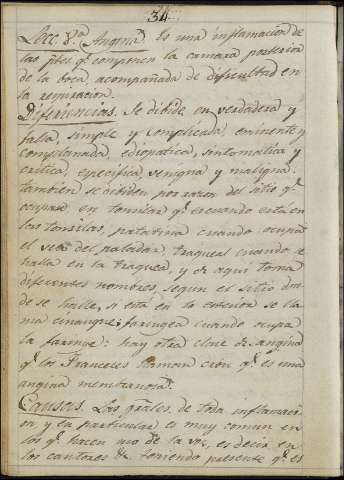 34..
Lecc. 8.ª Angina. Es una inflamacion de
las ptes q.e componen la camara posterior
de la boca, acompañada de dificultad en
la respiracion.
Diferiencias. Se dibide en verdadera y
falsa, simple y complicada, eminente y
complanada, ediopatica, sintomatica y
critica, especifica, venigna y maligna.
tambien se dibiden por razon del sitio q.e
ocupan en tonsilar q.e es cuando está en
las tonsilas, palatina cuando ocupa
el velo del paladar, traqueal cuando se
halla en la traquea, y de aqui toma
diferentes nombres, segun el sitio don-
de se halle, si está en lo exterior se lla
ma cinanque; faringea cuando ocupa
la faringe: hay otra clase de angina
q.e los Franceses llaman q.e es una
angina membranosa.
Causas. Las grales de toda inflamaci-
on, y en particular es muy comun en
los q.e hacen uso de la voz, es decir en
los cantores &. teniendo presente q.e es